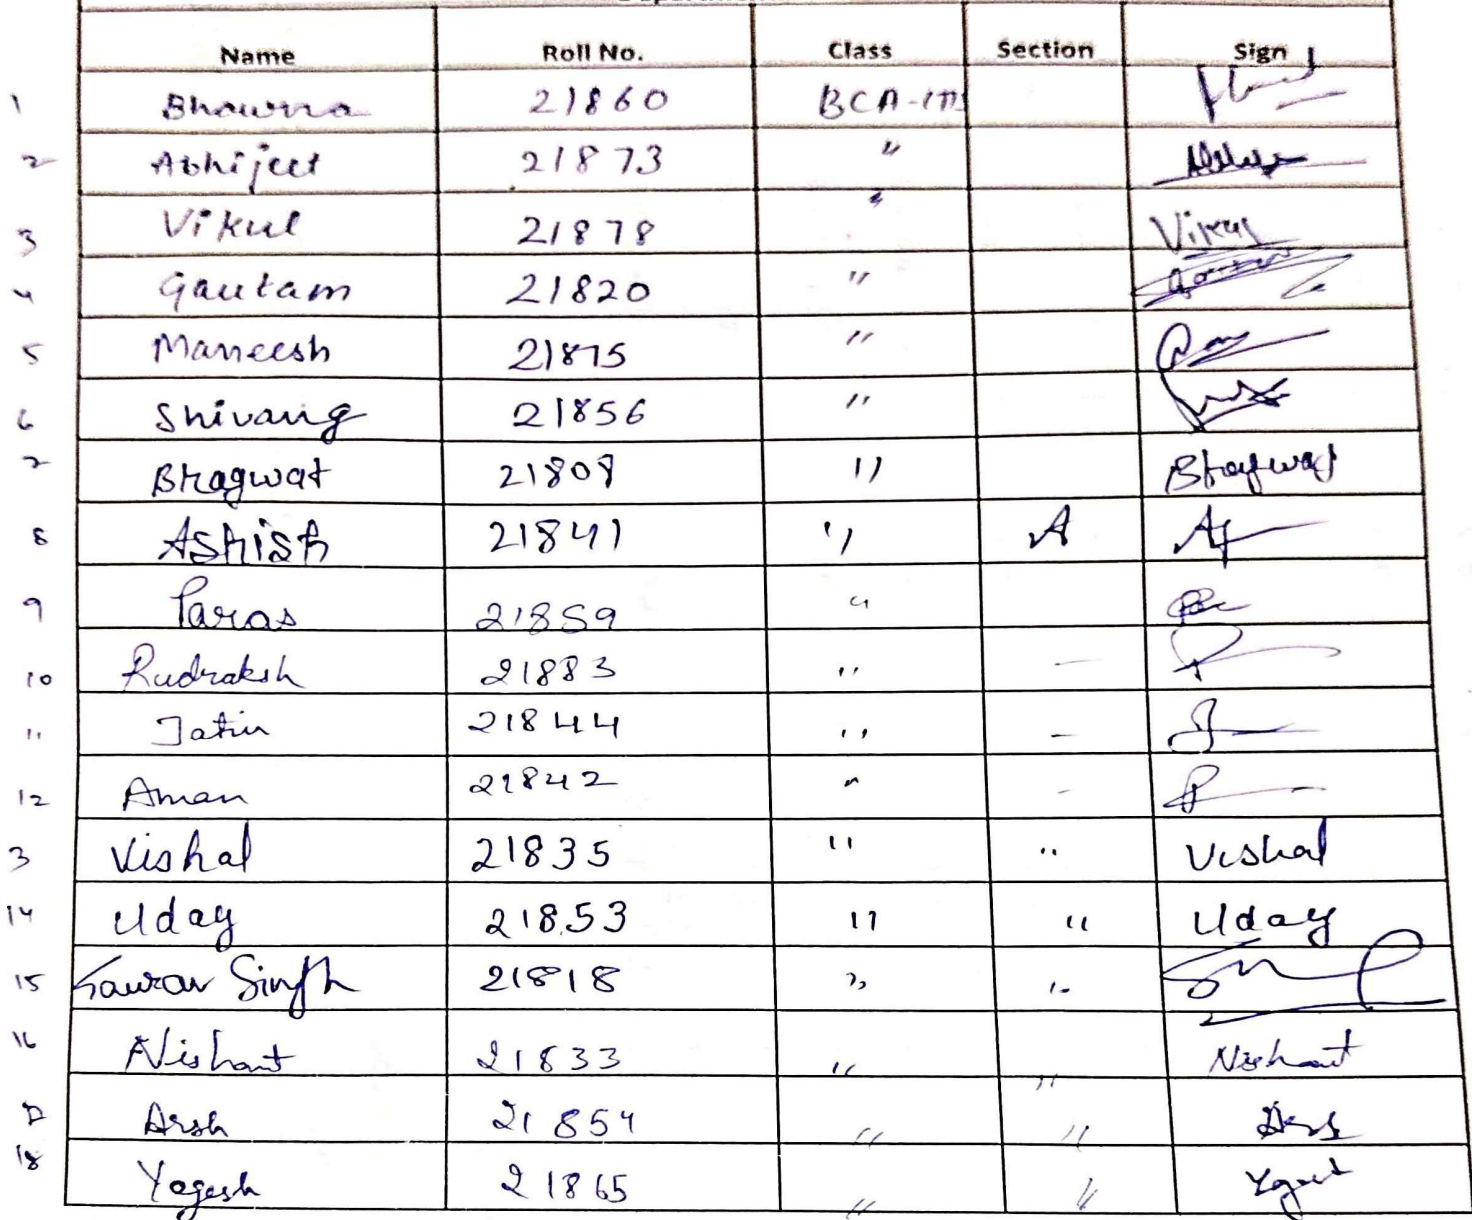 Name Roll No. Class Section Sign
1 Bhawna 21860 BCA-III
2 Abhijeet 21873 "
3 Vikul 21878 " Vikul
4 Gautam 21820 "
5 Maneesh 21875 "
6 Shivang 21856 "
7 Bhagwat 21809 " Bhagwat
8 Ashish 21841 " A
9 Paras 21859 "
10 Rudraksh 21883 " -
11 Jatin 21844 " -
12 Aman 21842 " -
3 Vishal 21835 " " Vishal
14 Uday 21853 " " Uday
15 Gaurav Singh 21818 " "
16 Nishant 21833 " " Nishant
17 Arsh 21854 " " Arsh
18 Yogesh 21865 " " Yogesh